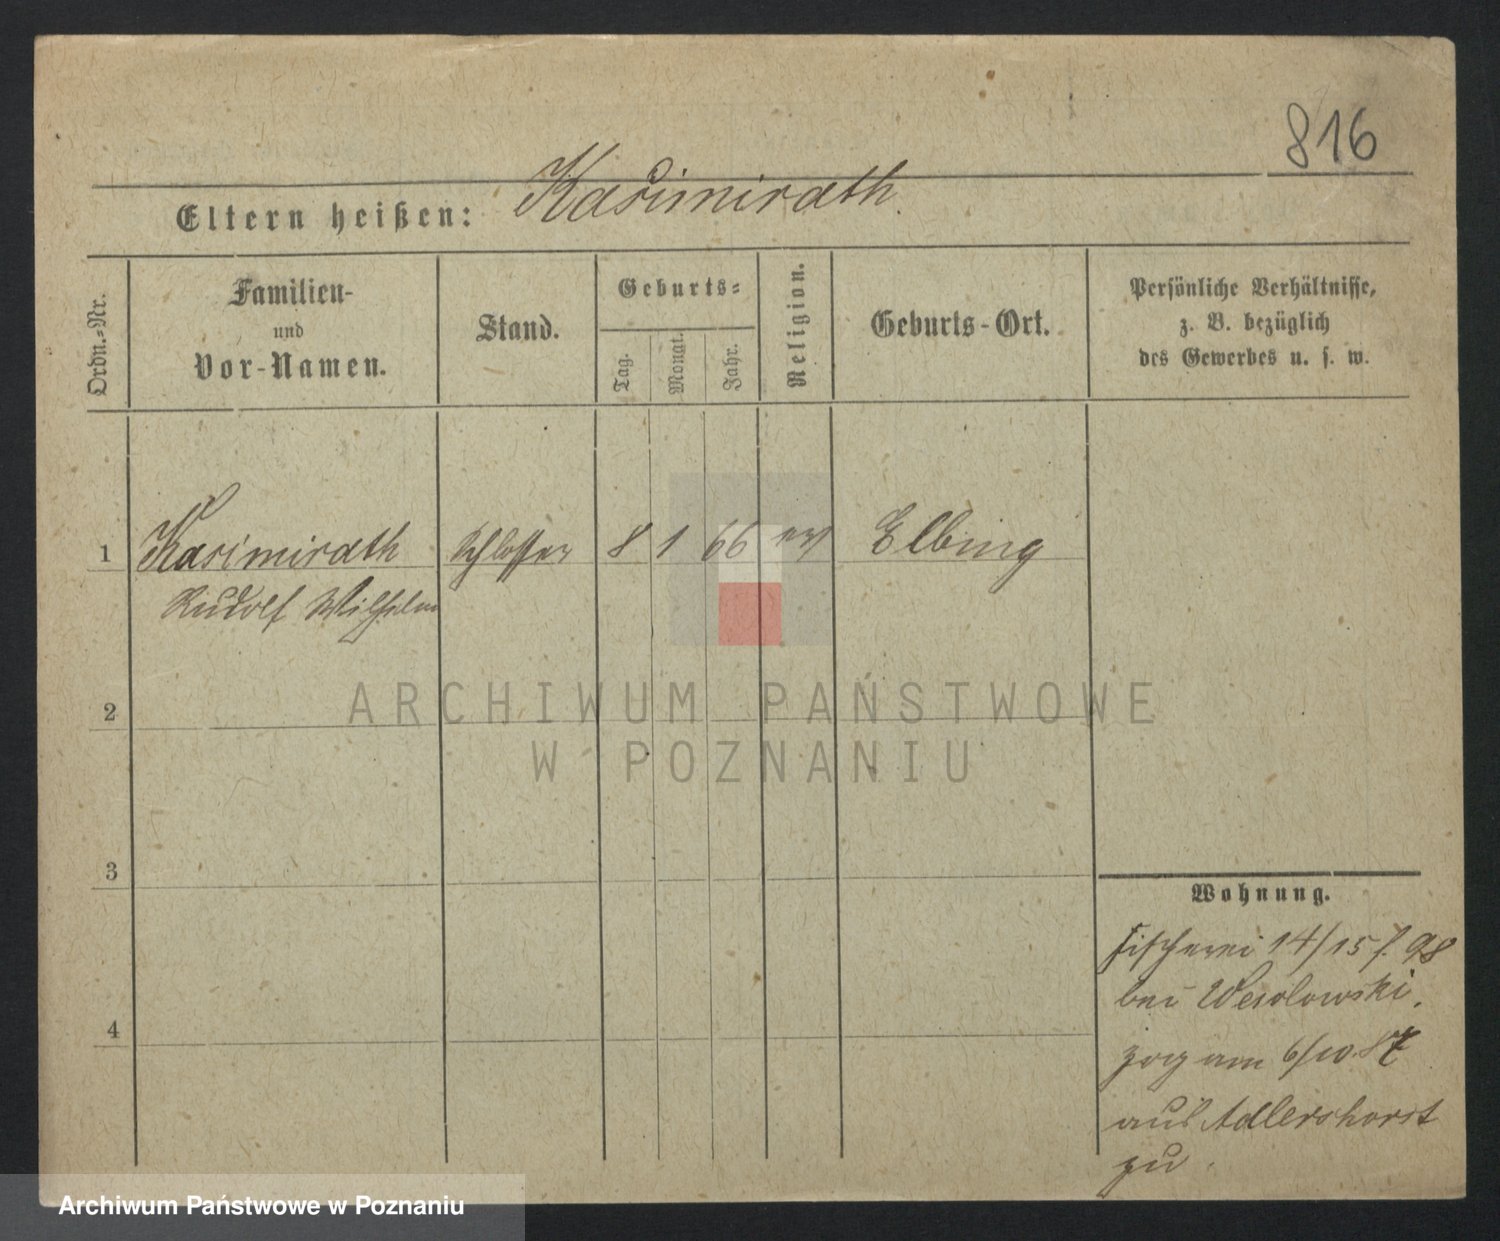 816
Eltern heißen: Kasimirath.
Ordn.-Nr.
Familien-
und
Vor-Namen.
Stand.
Geburts-
Tag.
Monat.
Jahr.
Religion.
Geburts-Ort.
Persönliche Verhältnisse,
z. B. bezüglich
des Gewerbes u. s. w.
1 Kasimirath Schlosser 8 1 66 ev Elbing
Rudolf Wilhelm
2
3
4
Wohnung.
Fischerei 14/15 98
bei Wesolowski.
zog am 6/10.87
aus Adlershorst
zu.
ARCHIWUM PAŃSTWOWE
W POZNANIU
Archiwum Państwowe w Poznaniu